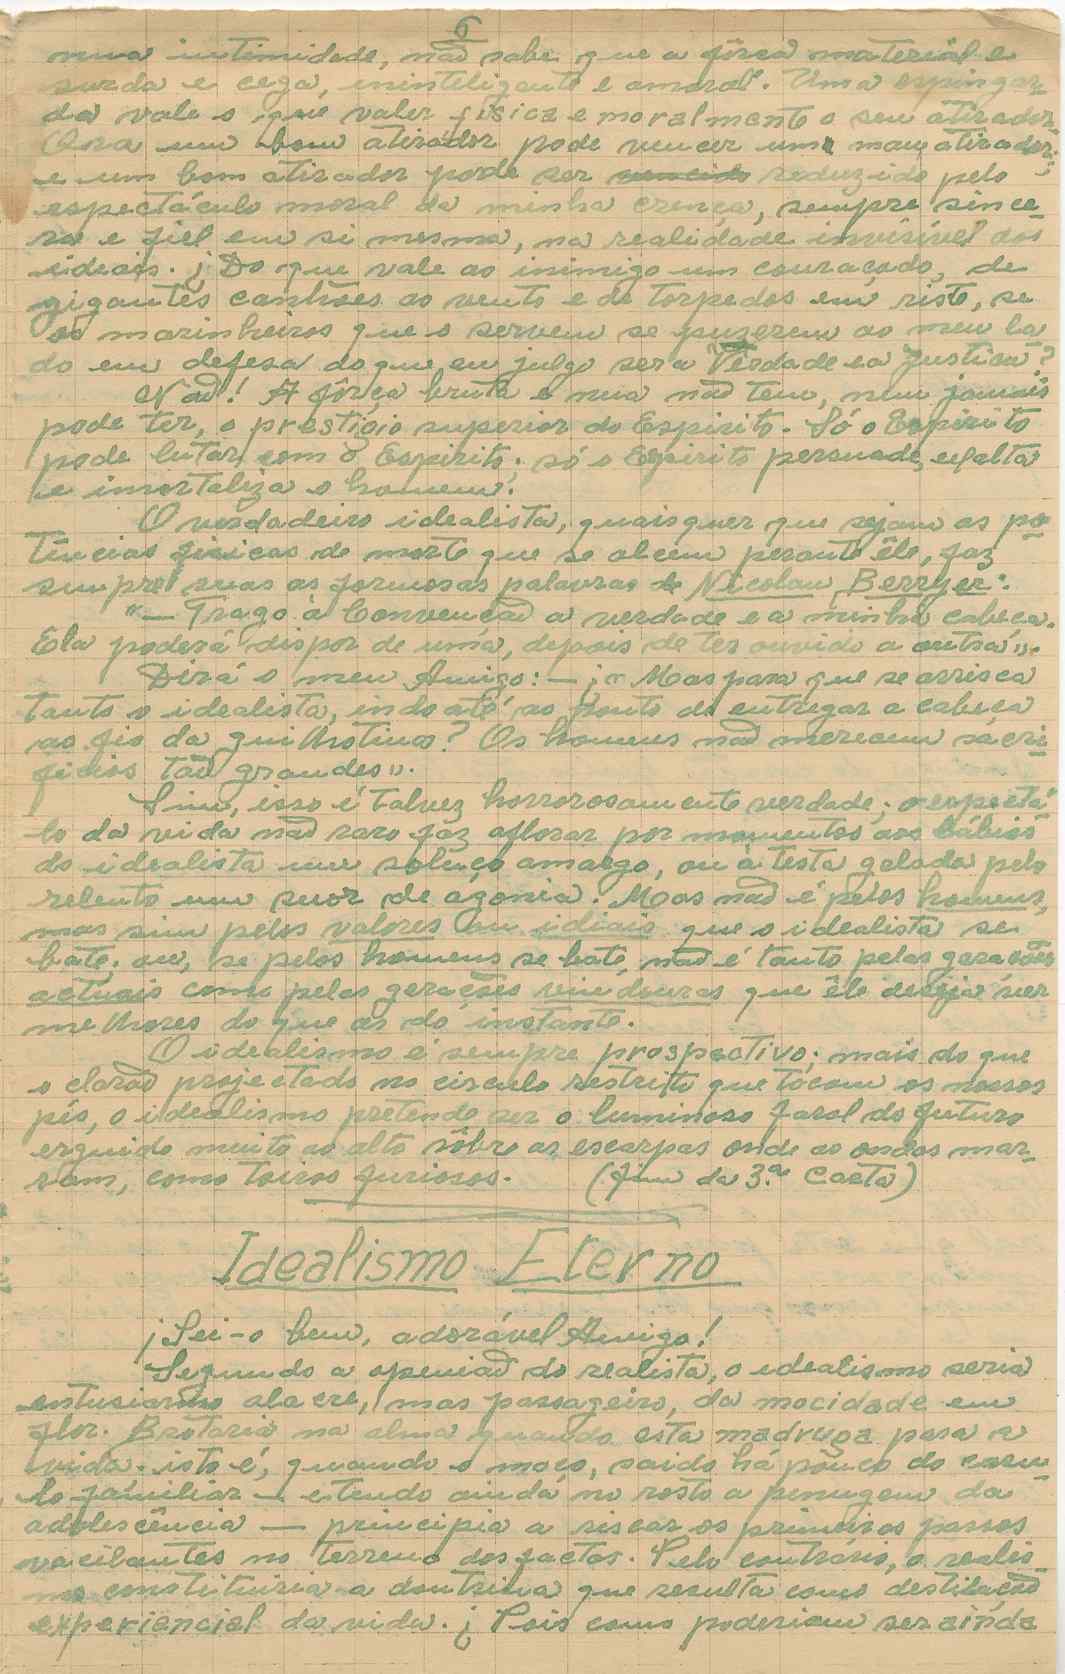 6
nua intimidade, não sabe que a fôrça material é
surda e cega, ininteligente e amoral. Uma espingar-
da vale o que valer física e moralmente o seu atirador.
Ora um bom atirador pode vencer um mau atirador;
e um bom atirador pode ser vencido reduzido pelo
espectáculo moral da minha crença, sempre since-
ra e fiel em si mesma, na realidade invisível dos
ideais. ¿Do que vale ao inimigo um couraçado, de
gigantes canhões ao vento e de torpedos em riste, se
os marinheiros que o servem se puzerem ao meu la-
do em defesa do que eu julgo ser a Verdade e a Justiça?
Não! A fôrça bruta e nua não tem, nem jamais
pode ter, o prestígio superior do Espírito. Só o Espírito
pode lutar com o Espírito; só o Espírito persuade, exalta
e imortaliza o homem.
O verdadeiro idealista, quaisquer que sejam as po-
tências físicas de morte que se alcem perante êle, faz
sempre suas as formosas palavras de Nicolau Berryer:
"— Trago à Convenção a verdade e a minha cabeça.
Ela poderá dispor de uma, depois de ter ouvido a outra".
Dirá o meu Amigo: — ¿" Mas para que se arrisca
tanto o idealista, indo até ao ponto de entregar a cabeça
ao fio da guilhotina? Os homens não merecem sacri-
fícios tão grandes".
Sim, isso é talvez horrorosamente verdade; o espectácu-
lo da vida não raro faz aflorar por momentos aos lábios
do idealista um soluço amargo, ou à testa gelada pelo
relento um suor de agonia. Mas não é pelos homens,
mas sim pelos valores ou idiais que o idealista se
bate; ou, se pelos homens se bate, não é tanto pelas gerações
actuais como pelas gerações vindouras que êle deseja ver
melhores do que as do instante.
O idealismo é sempre prospectivo; mais do que
o clarão projectado no circulo restrito que tocam os nossos
pés, o idealismo pretende ser o luminoso farol do futuro
erguido muito ao alto sôbre as escarpas onde as ondas mar-
ram, como toiros furiosos. (Fim da 3.ª Carta)
Idealismo Eterno
¡Sei-o bem, adorável Amigo!
Segundo a openião do realista, o idealismo seria
entusiasmo alacre, mas passageiro, da mocidade em
flor. Brotaria na alma quando esta madruga para a
vida. isto é, quando o moço, saído há pouco do casu-
lo familiar — e tendo ainda no rosto a penugem da
adolescência — principia a riscar os primeiros passos
vacilantes no terreno dos factos. Pelo contrário, o realis-
mo constituiria a doutrina que resulta como destilação
experiencial da vida. ¿Pois como poderiam ser ainda